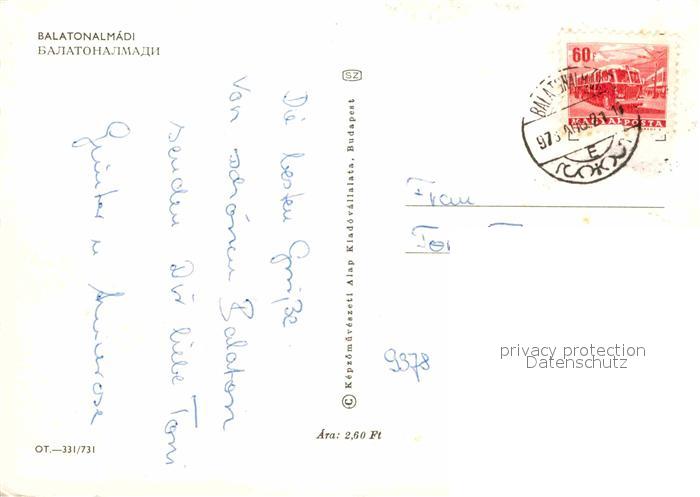 BALATONALMÁDI
БАЛАТОНАЛМАДИ
Die besten Grüße
von schönen Balaton
senden Dir liebe Toni
Günter u. Annerose
SZ
© Képzőművészeti Alap Kiadóvállalata, Budapest
60f
MAGYAR POSTA
BALATONALMÁDI
E
Frau
9378
privacy protection
Datenschutz
Ára: 2,60 Ft
OT.—331/731